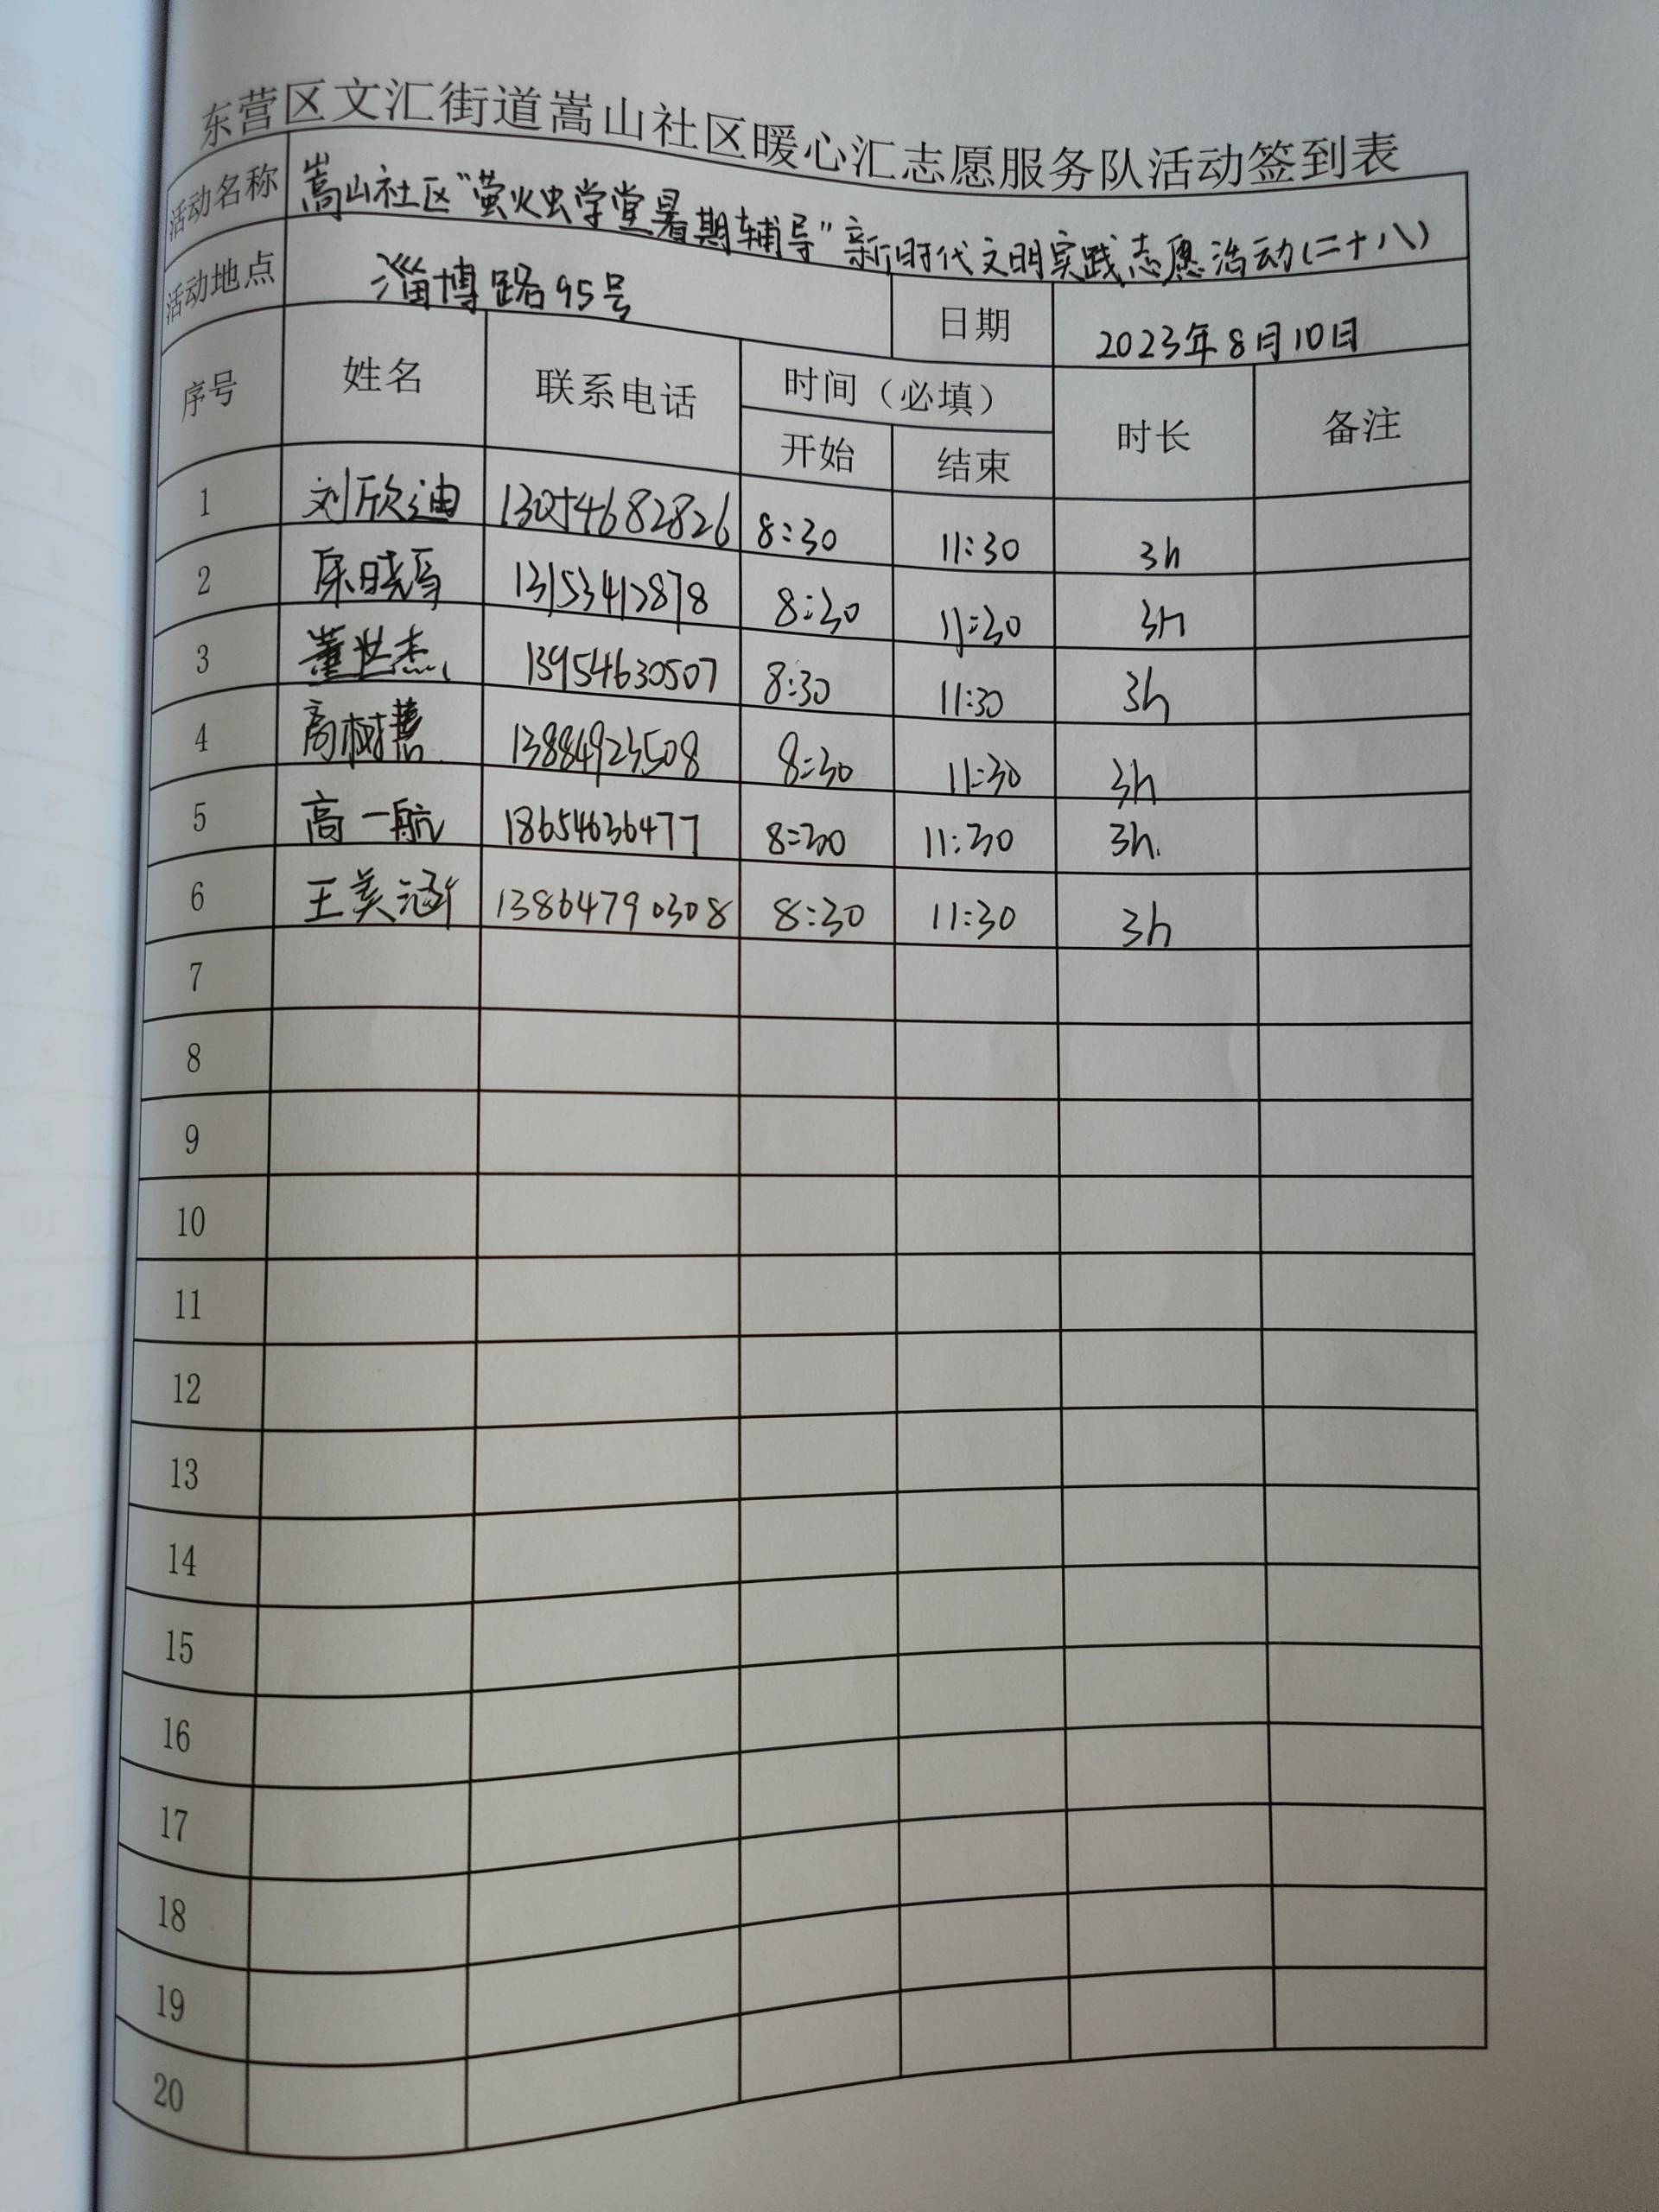 东营区文汇街道嵩山社区暖心汇志愿服务队活动签到表
活动名称 嵩山社区"萤火虫学堂暑期辅导"新时代文明实践志愿活动(二十八)
活动地点 淄博路95号 日期 2023年8月10日
序号 姓名 联系电话 时间（必填） 时长 备注
开始 结束
1 刘欣迪 13054682826 8:30 11:30 3h
2 晓 8:30 11:30 3h
3 董世杰 13954630507 8:30 11:30 3h
4 高树 13884923508 8:30 11:30 3h
5 高一航 18654636477 8:30 11:30 3h.
6 王美涵 13864790308 8:30 11:30 3h
7
8
9
10
11
12
13
14
15
16
17
18
19
20